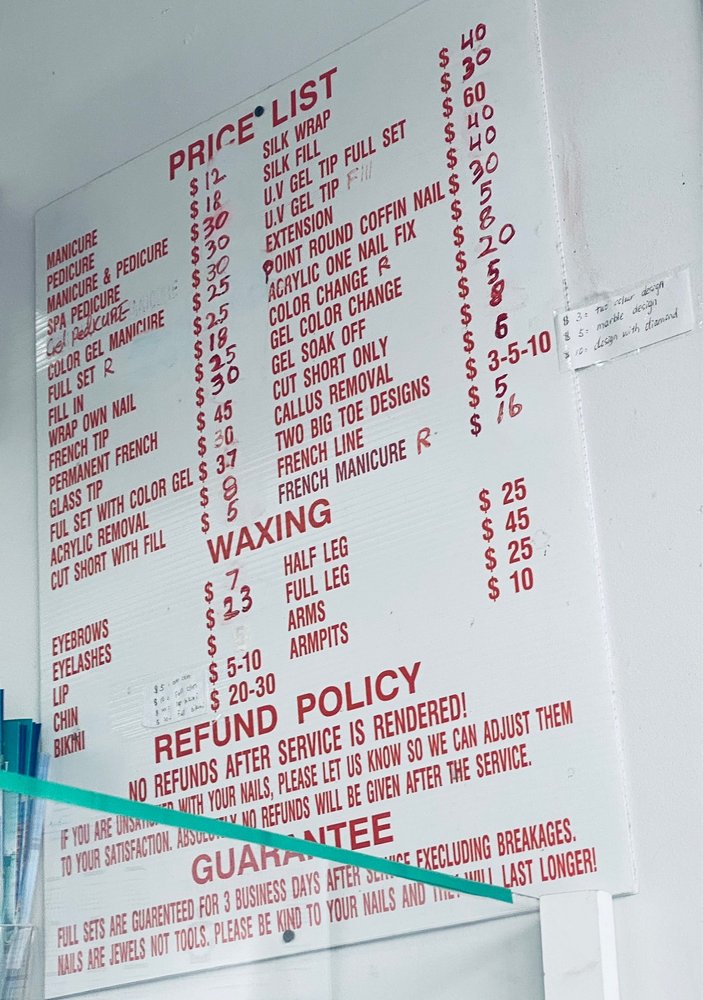 PRICE LIST
MANICURE $ 12
PEDICURE $ 18
MANICURE & PEDICURE $ 30
SPA PEDICURE $ 30
Gel Pedicure $ 30
COLOR GEL MANICURE $ 25
FULL SET R $ 25
FILL IN $ 18
WRAP OWN NAIL $ 25
FRENCH TIP $ 30
PERMANENT FRENCH $ 45
GLASS TIP $ 30
FUL SET WITH COLOR GEL $ 37
ACRYLIC REMOVAL $ 8
CUT SHORT WITH FILL $ 5
SILK WRAP $ 40
SILK FILL $ 30
U.V GEL TIP FULL SET $ 60
U.V GEL TIP Fill $ 40
EXTENSION $ 40
POINT ROUND COFFIN NAIL $ 30
ACRYLIC ONE NAIL FIX $ 5
COLOR CHANGE R $ 8
GEL COLOR CHANGE $ 20
GEL SOAK OFF $ 5
CUT SHORT ONLY $ 8
CALLUS REMOVAL $ 6
TWO BIG TOE DESIGNS $ 3-5-10
FRENCH LINE $ 5
FRENCH MANICURE R $ 16
$ 3 = two colour design
$ 5 = marble design
$ 10 = design with diamond
WAXING
EYEBROWS $ 7
EYELASHES $ 23
LIP $
CHIN $ 5-10
BIKINI $ 20-30
HALF LEG $ 25
FULL LEG $ 45
ARMS $ 25
ARMPITS $ 10
REFUND POLICY
NO REFUNDS AFTER SERVICE IS RENDERED!
IF YOU ARE UNSATISFIED WITH YOUR NAILS, PLEASE LET US KNOW SO WE CAN ADJUST THEM
TO YOUR SATISFACTION. ABSOLUTELY NO REFUNDS WILL BE GIVEN AFTER THE SERVICE.
GUARANTEE
FULL SETS ARE GUARENTEED FOR 3 BUSINESS DAYS AFTER SERVICE EXCLUDING BREAKAGES.
NAILS ARE JEWELS NOT TOOLS. PLEASE BE KIND TO YOUR NAILS AND THEY WILL LAST LONGER!